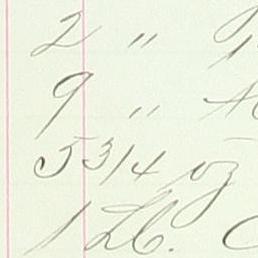 2 "
9 "
5 3/4 oz
1 Lb.